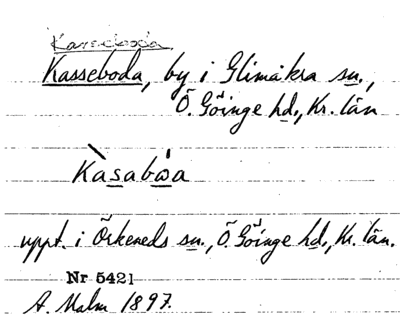 Kasseboda
Kasseboda, by i Glimåkra sn.,
Ö. Göinge hd., Kr. län
Kàsabωa
uppt. i Örkeneds sn., Ö. Göinge hd., Kr. län.
Nr 5421
A. Malm 1897.